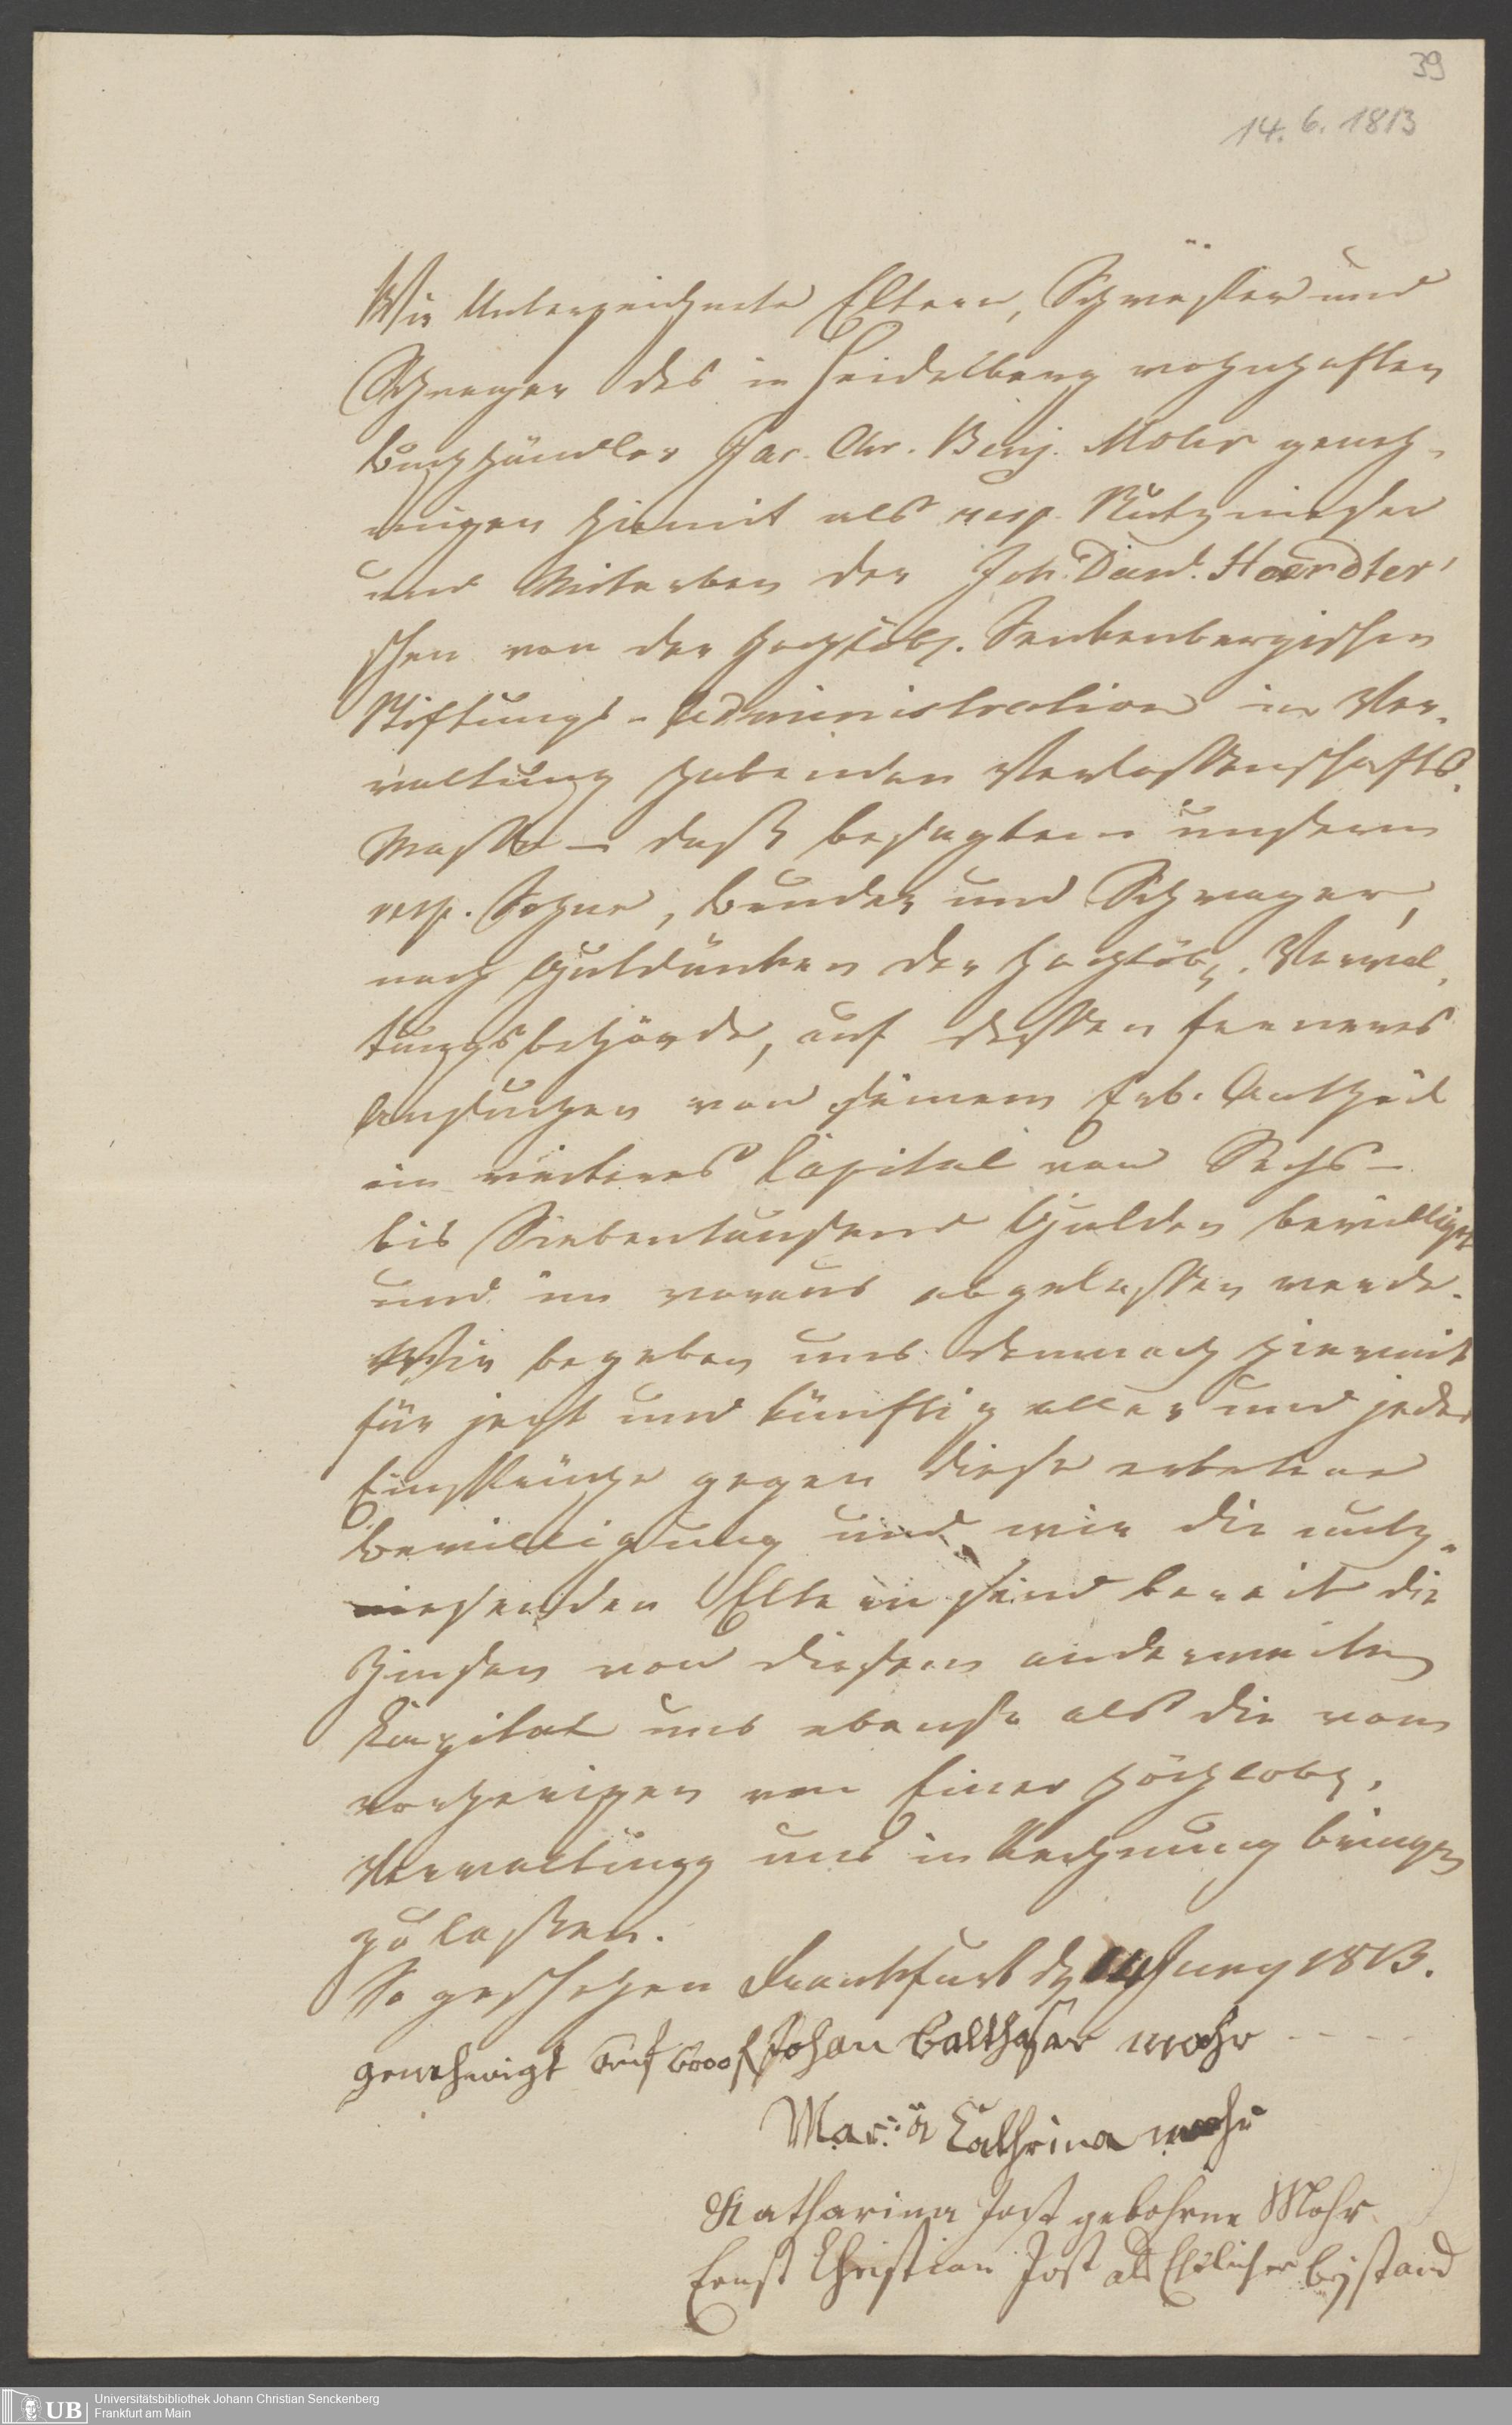 39
14. 6. 1813
Wir Unterzeichnete Eltern, Schwester und
Schwager des in Heidelberg wohnhaften
Buchhändler Jac. Chr. Benj. Mohr geneh-
migen hiemit als resp. Nutznieser
und Miterben der Joh. Dan.l. Hoerdter'
schen von der Hochlöbl. Senkenbergischen
Stiftungs-Administration in Ver-
waltung habenden Verlassenschafts-
Masse – daß besagtem unserm
resp. Sohne, Bruder und Schwager,
nach Gutdünken der Hochlöbl. Verwal-
tungsbehörde, auf dessen ferneres
Ansuchen von seinem Erb-Antheil
ein weiteres Capital von Sechs-
bis Siebentausend Gulden bewilliget
und im voraus abgelassen werde.
Wir begeben uns demnach hiermit
für jezt und künftig aller und jeder
Einsprüche gegen diese erbetene
Bewilligung und wir die nutz-
niesenden Eltern sind bereit die
Zinsen von diesem anderweiten
Kapital uns ebenso als die vom
vorherigen von Einer Höchlobl.
Verwaltung uns in Rechnung bringen
zu lassen.
So geschehen Frankfurt d 14 Juny 1813.
genehmigt auf 6000 f Johan Balthasar Mohr
Maria Cathrina Mohr
Katharina Jost gebohrne Mohr
Ernst Christian Jost als Ehlicher Bystand
UB Universitätsbibliothek Johann Christian Senckenberg
Frankfurt am Main